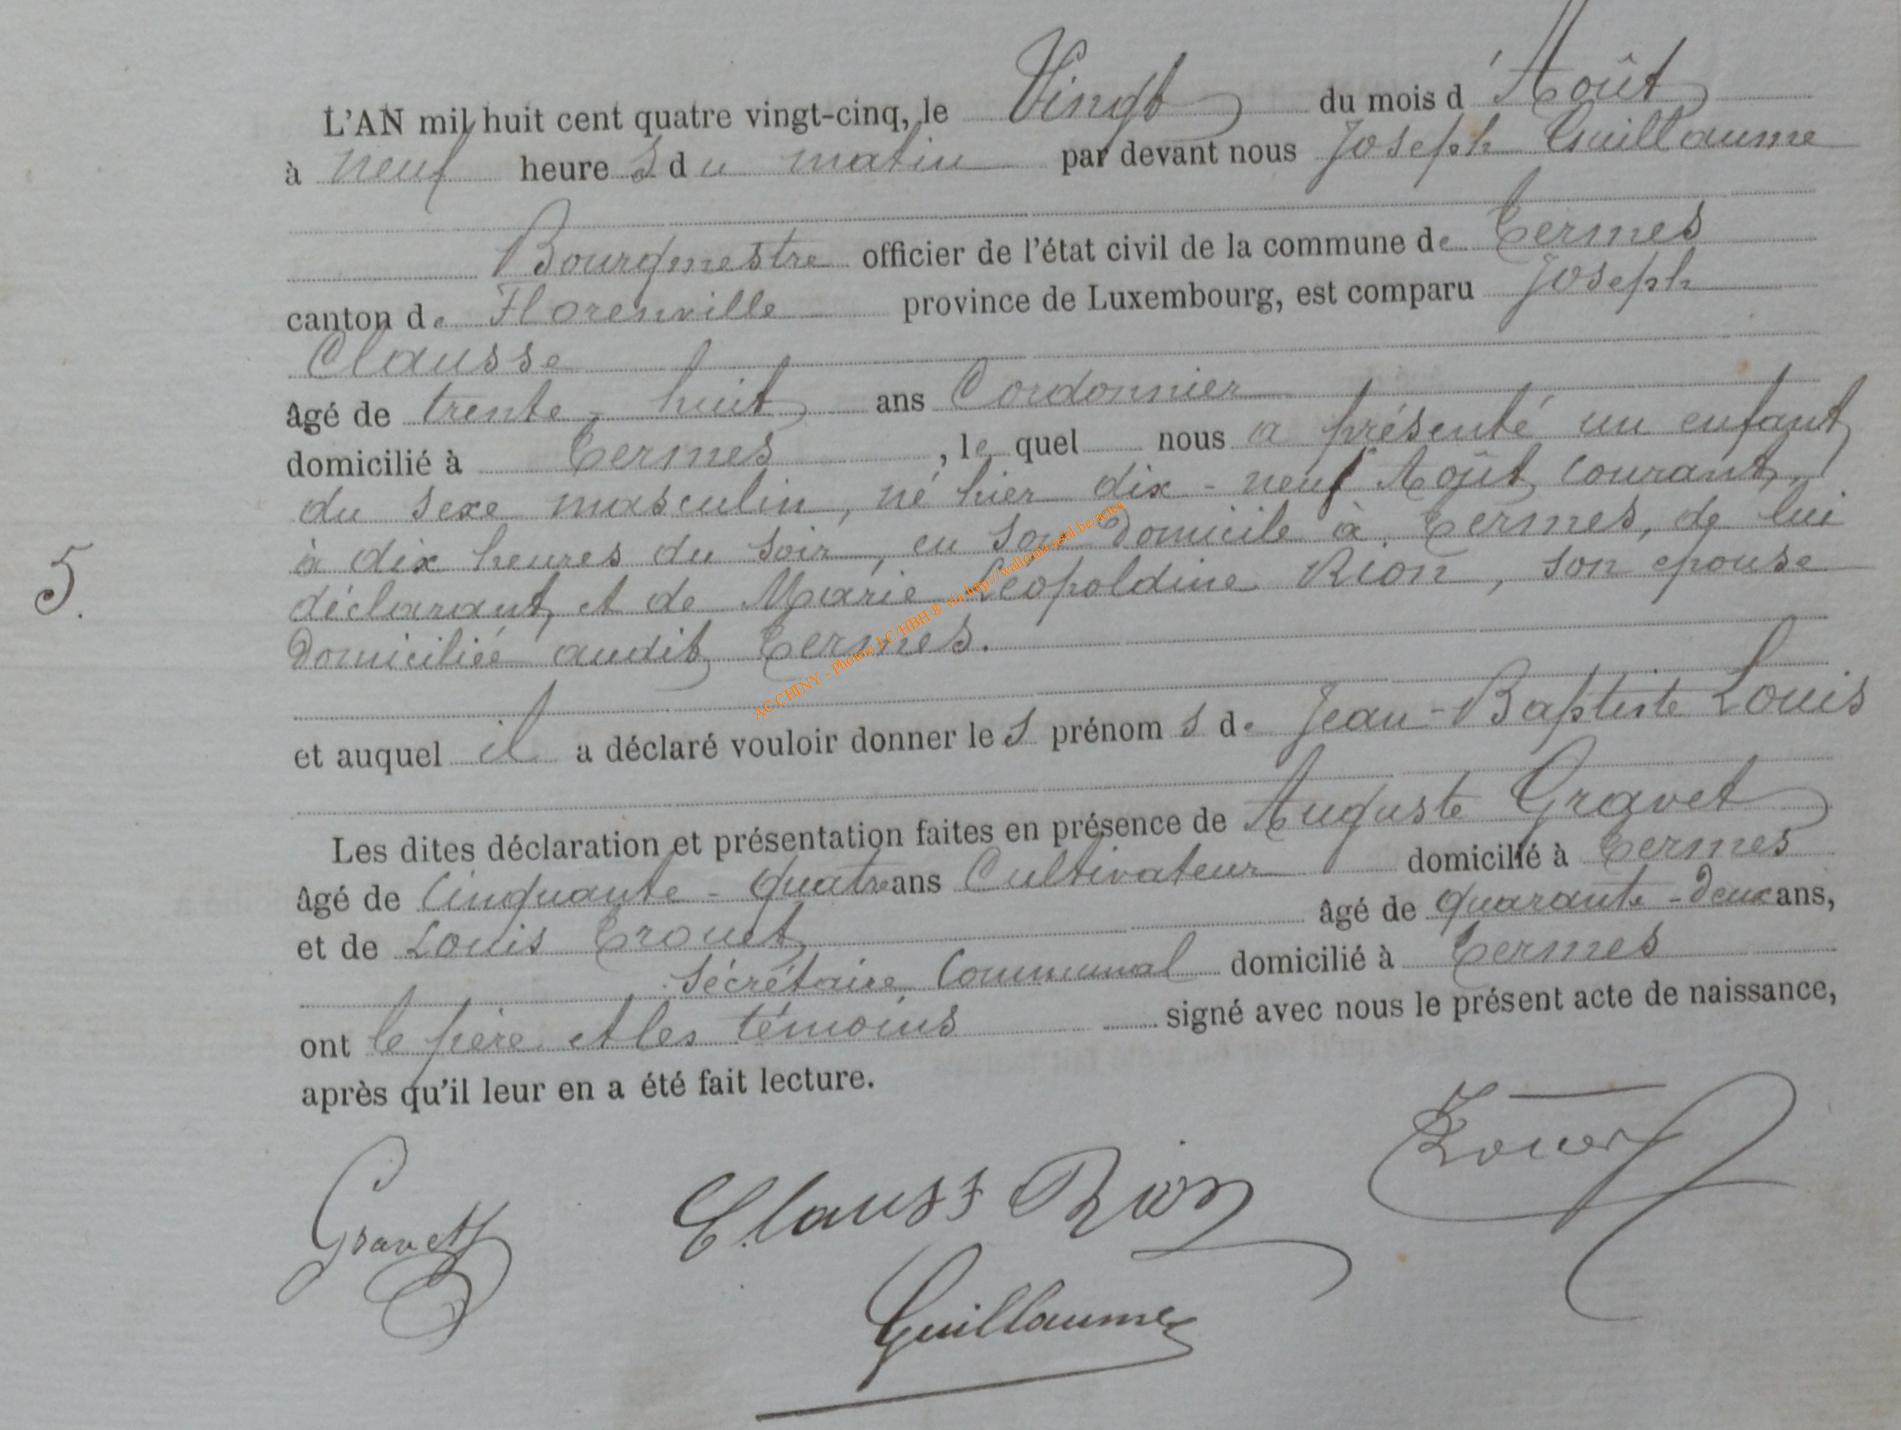 L'AN mil huit cent quatre vingt-cinq, le Vingt du mois d'Août
à neuf heures du matin par devant nous Joseph Guillaume
Bourgmestre officier de l'état civil de la commune de Termes
canton de Florenville province de Luxembourg, est comparu Joseph
Clausse
âgé de trente-huit ans Cordonnier
domicilié à Termes, lequel nous a présenté un enfant
du sexe masculin, né hier dix-neuf Août courant,
à dix heures du soir, en son domicile à Termes, de lui
déclarant, et de Marie Léopoldine Rion, son epouse
domiciliée audit Termes.
et auquel il a déclaré vouloir donner les prénoms de Jean-Baptiste Louis
Les dites déclaration et présentation faites en présence de Auguste Gravet
âgé de Cinquante-quatre ans Cultivateur domicilié à Termes
et de Louis Trouet âgé de quarante-deux ans,
Sécrétaire Communal domicilié à Termes
ont le père et les témoins signé avec nous le présent acte de naissance,
après qu'il leur en a été fait lecture.
5.
Gravet Clauss Rion Trouet
Guillaume